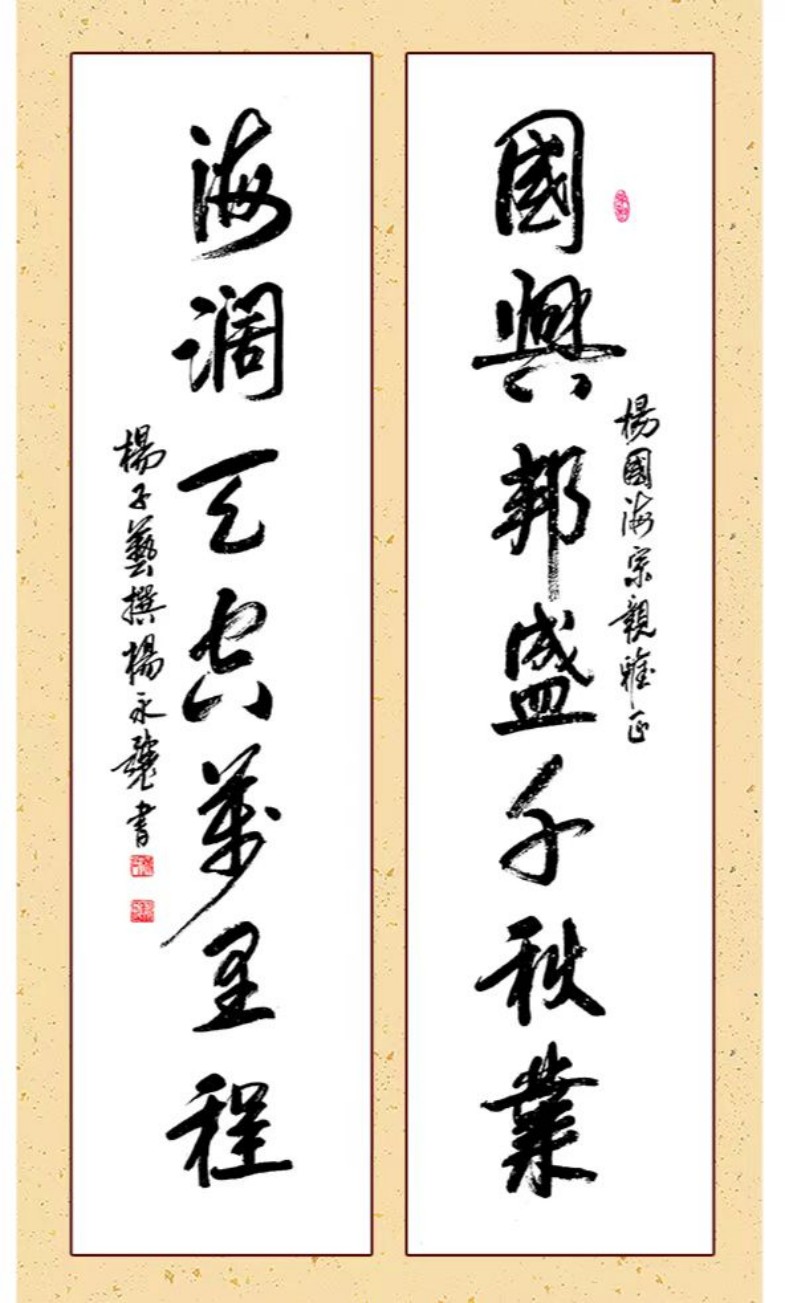 楊國海宗親雅正
國興邦盛千秋業
海濶天空萬里程
楊子藝撰楊永書